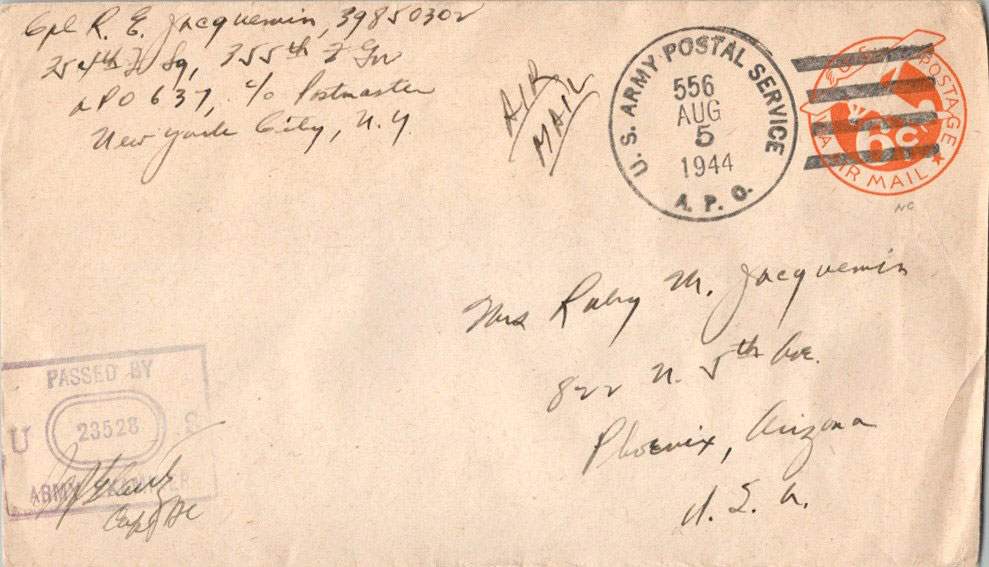 Cpl R. E. Jacquemin, 39850302
354th F Sq, 355th F Gr
APO 637, c/o Postmaster
New York City, N.Y.
AIR
MAIL
U. S. ARMY POSTAL SERVICE
556
AUG
5
1944
A. P. O.
U.S. POSTAGE
6c
VIA AIR MAIL
NC
Mrs Ruby M. Jacquemin
822 N. 5th Ave.
Phoenix, Arizona
U. S. A.
PASSED BY
U 23528 S
ARMY EXAMINER
Capt